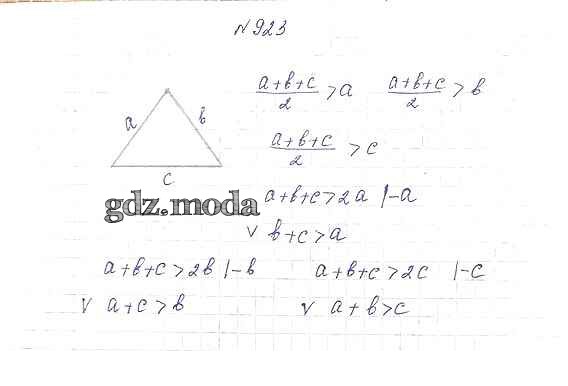 N923
(a+b+c)/2 > a (a+b+c)/2 > b
a b
(a+b+c)/2 > c
c
gdz.moda
a+b+c>2a |-a
v b+c>a
a+b+c>2b |-b a+b+c>2c |-c
v a+c>b v a+b>c